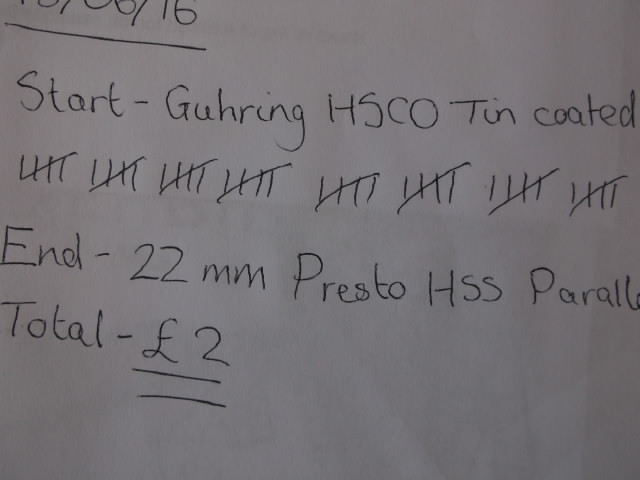 /06/16
Start - Guhring HSCO Tin coated
End - 22 mm Presto HSS Paralle
Total - £2